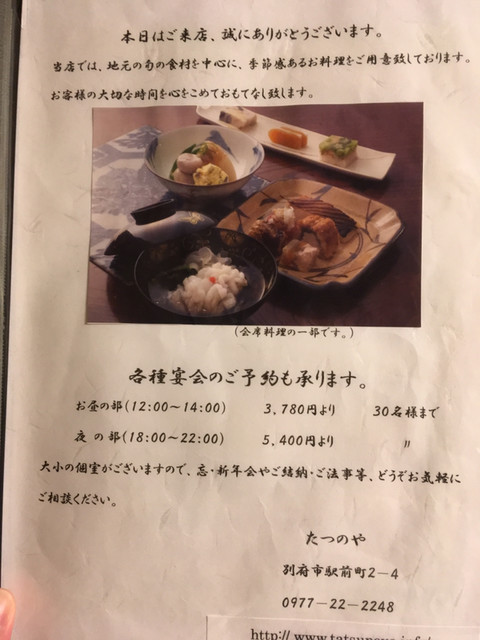 本日はご来店、誠にありがとうございます。
当店では、地元の旬の食材を中心に、季節感あるお料理をご用意致しております。
お客様の大切な時間を心をこめておもてなし致します。
(会席料理の一部です。)
各種宴会のご予約も承ります。
お昼の部(12:00～14:00) 3,780円より 30名様まで
夜の部(18:00～22:00) 5,400円より 〃
大小の個室がございますので、忘・新年会やご結納・ご法事等、どうぞお気軽に
ご相談ください。
たつのや
別府市駅前町2－4
0977－22－2248
http://www.tatsunoya.info/